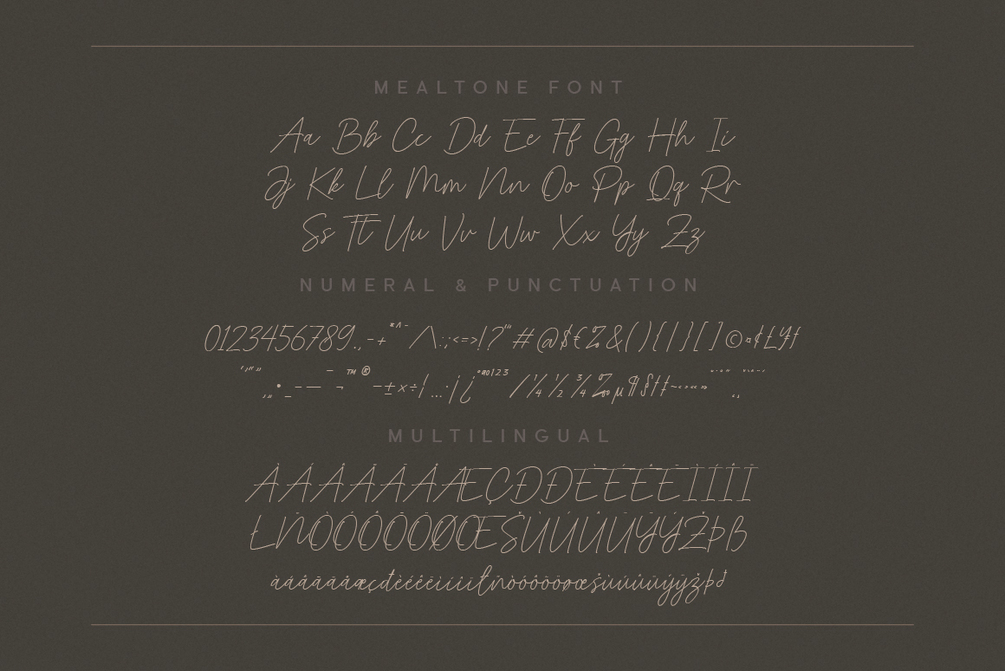 MEALTONE FONT
Aa Bb Cc Dd Ee Ff Gg Hh Ii
Jj Kk Ll Mm Nn Oo Pp Qq Rr
Ss Tt Uu Vv Ww Xx Yy Zz
NUMERAL & PUNCTUATION
0123456789.,-+"^~/\:;<=>!?'"#@$€%&(){|}[]©¤¢£¥ƒ
•_–—¯¬™®−±×÷¦…·¡¿ªº0123⁄¼½¾‰µ¶§†‡
MULTILINGUAL
ÀÁÂÃÄÅÆÇÐĐÈÉÊËÌÍÎÏ
ŁÑÒÓÔÕÖØŒŠÙÚÛÜÝŸŽÞß
àáâãäåæçđèéêëìíîïłñòóôõöøœšùúûüýÿžþð